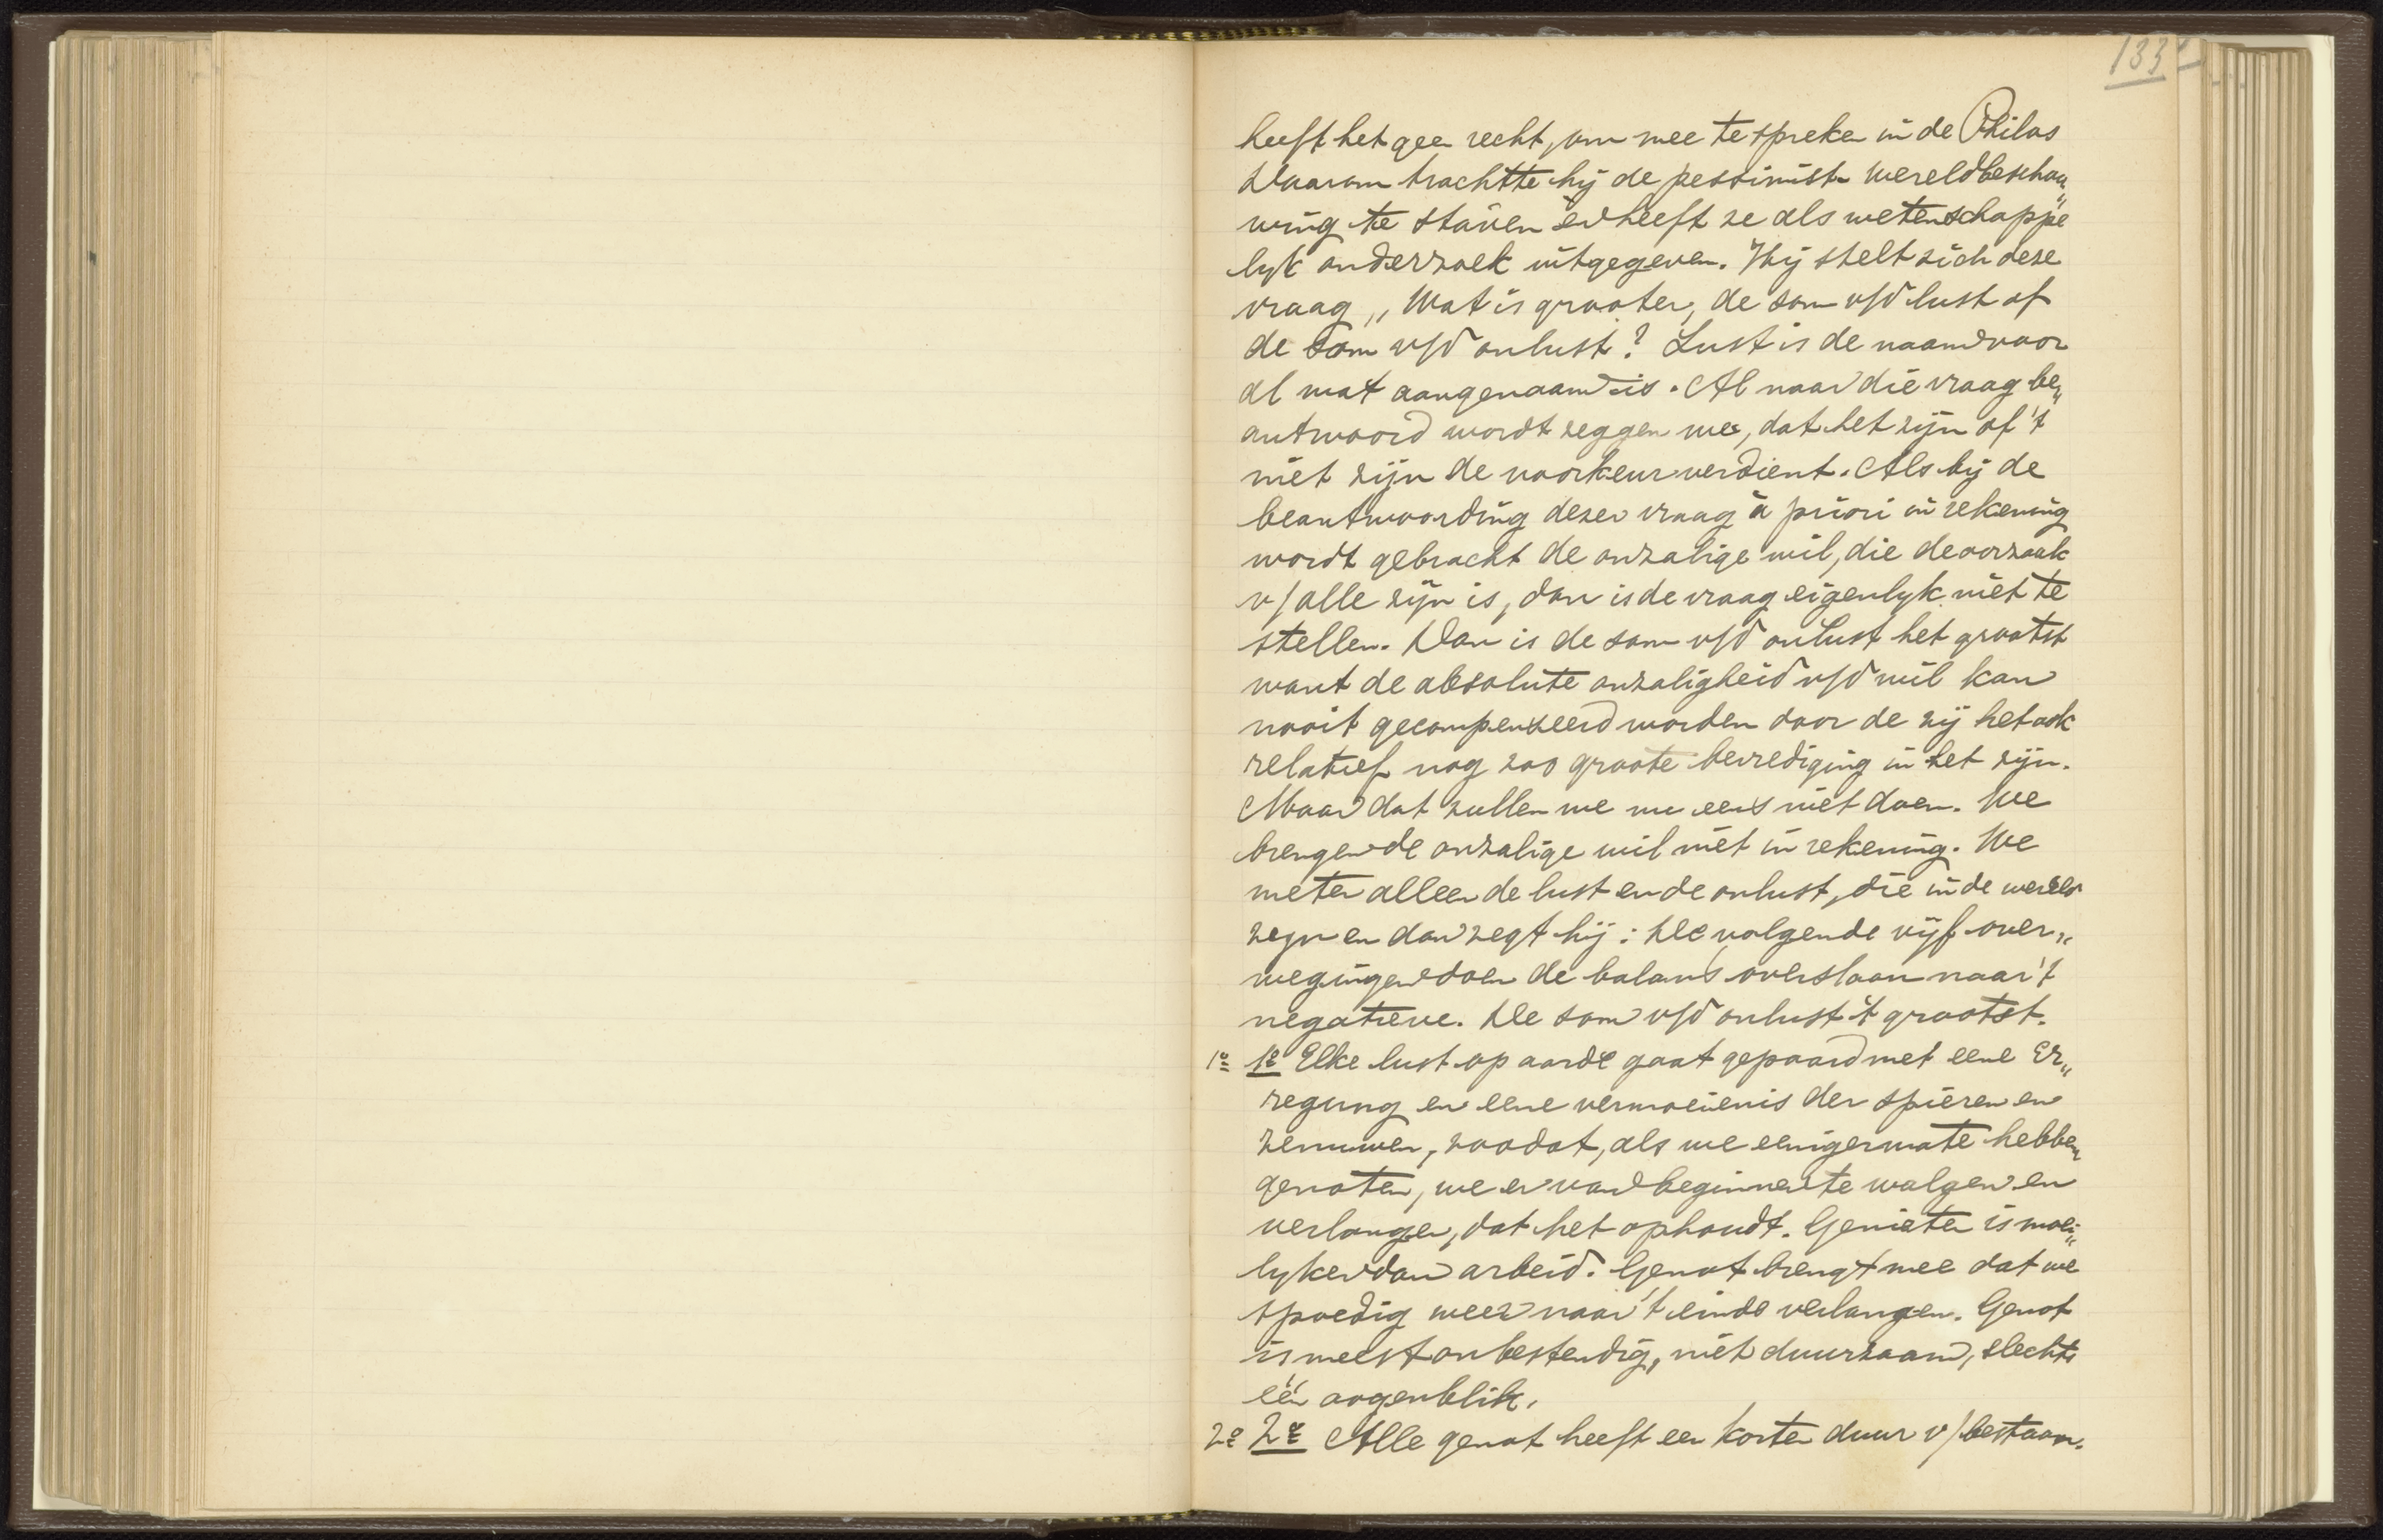 133
heeft het geen recht, om mee te spreken in de Philos
Daarom trachtte hij de pessimist. wereldbeschou„
wing te staven en heeft ze als wetenschappe
lyk onderzoek uitgegeven. Hij stelt zich deze
vraag „Wat is grooter, de som v/d lust of
de som v/d onlust? Lust is de naam voor
al wat aangenaam is. Al naar die vraag be„
antwoord wordt zeggen we, dat het zijn of 't
niet zijn de voorkeur verdient. Als bij de
beantwoording dezer vraag à priori in rekening
wordt gebracht de onzalige wil, die de oorzaak
v/ alle zijn is, dan is de vraag eigenlyk niet te
stellen. Dan is de som v/d onlust het grootst
want de absolute onzaligheid v/d wil kan
nooit gecompenseerd worden door de zij het ook
relatief nog zoo groote bevrediging in het zijn.
Maar dat zullen we nu eens niet doen. We
brengen de onzalige wil niet in rekening. We
meten alleen de lust en de onlust, die in de wereld
zijn en dan zegt hij: De volgende vijf over„
wegingen doen de balans overslaan naar 't
negatieve. De som v/d onlust is 't grootst.
1e 1e Elke lust op aarde gaat gepaard met eene Er„
regung en eene vermoeienis der spieren en
zenuwen, zoodat, als we eenigermate hebben
genoten, we er van beginnen te walgen en
verlangen, dat het ophoudt. Genieten is moei„
lyker dan arbeid. Genot brengt mee dat we
spoedig weer naar 't einde verlangen. Genot
is meest onbestendig, niet duurzaam, slechts
één oogenblik.
2e 2e Alle genot heeft een korten duur v/ bestaan.